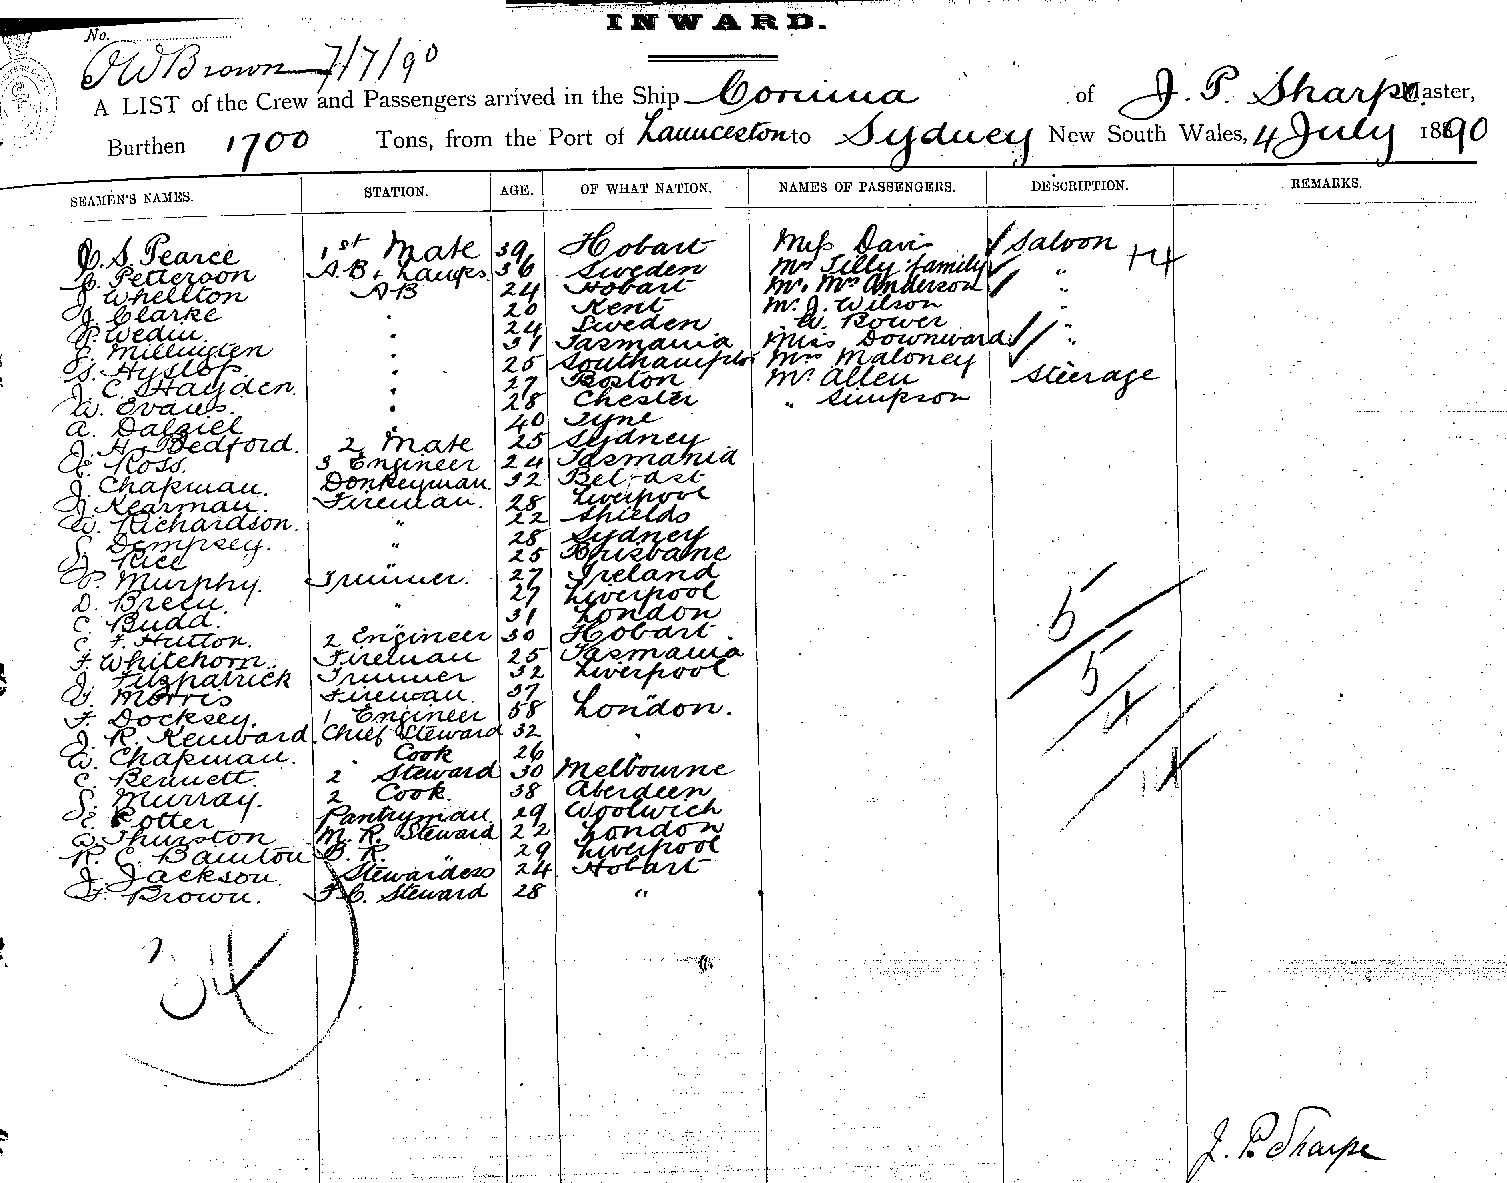 INWARD.
No.
J W Brown 7/7/90
A LIST of the Crew and Passengers arrived in the Ship Corinna of J. P. Sharpe Master,
Burthen 1700 Tons, from the Port of Launceston to Sydney New South Wales, 4 July 1890
SEAMEN'S NAMES. STATION. AGE. OF WHAT NATION. NAMES OF PASSENGERS. DESCRIPTION. REMARKS.
S. Pearce 1st Mate 39 Hobart Miss Davis Saloon
Petterson A.B. & Lamps 36 Sweden Mrs Tilly family " +4
J Whellton AB 24 Hobart Mr. Mrs Anderson "
J Clarke " 20 Kent Mr. J. Wilson "
P. Wedin " 24 Sweden " W. Rower "
Millington " 31 Tasmania Miss Downward "
Hyslop " 25 Southampton Mrs Maloney
J. C. Hayden " 27 Boston Mr Allen Steerage
W. Evans " 28 Chester " Simpson
A. Dalziel " 40 Tyne
J. H. Bedford. 2 Mate 25 Sydney
Ross. 3 Engineer 24 Tasmania
J. Chapman. Donkeyman 32 Belfast
J. Kearman. Fireman. 28 Liverpool
W. Richardson. " 22 Shields
Dempsey. " 28 Sydney
J Rice " 25 Brisbane
P. Murphy. Trimmer. 27 Ireland
D. Breen. " 27 Liverpool
C Budd. 31 London
C F. Hutton. 2 Engineer 30 Hobart.
F. Whitehorn. Fireman 25 Tasmania
J. Fitzpatrick Trimmer 32 Liverpool
Morris Fireman 37 "
F. Docksey. 1 Engineer 58 London.
J. R. Kenward. Chief Steward 32 "
W. Chapman. " Cook 26
C. Bennett. 2 Steward 30 Melbourne
S. Murray. 2 Cook. 38 Aberdeen
Potter Pantryman 29 Woolwich
Thurston M. R. Steward 22 London
R. C. Bainton B. R. " 29 Liverpool
J. Jackson. Stewardess 24 Hobart
Brown. F. C. Steward 28 "
5
5
4
14
34
J. P. Sharpe